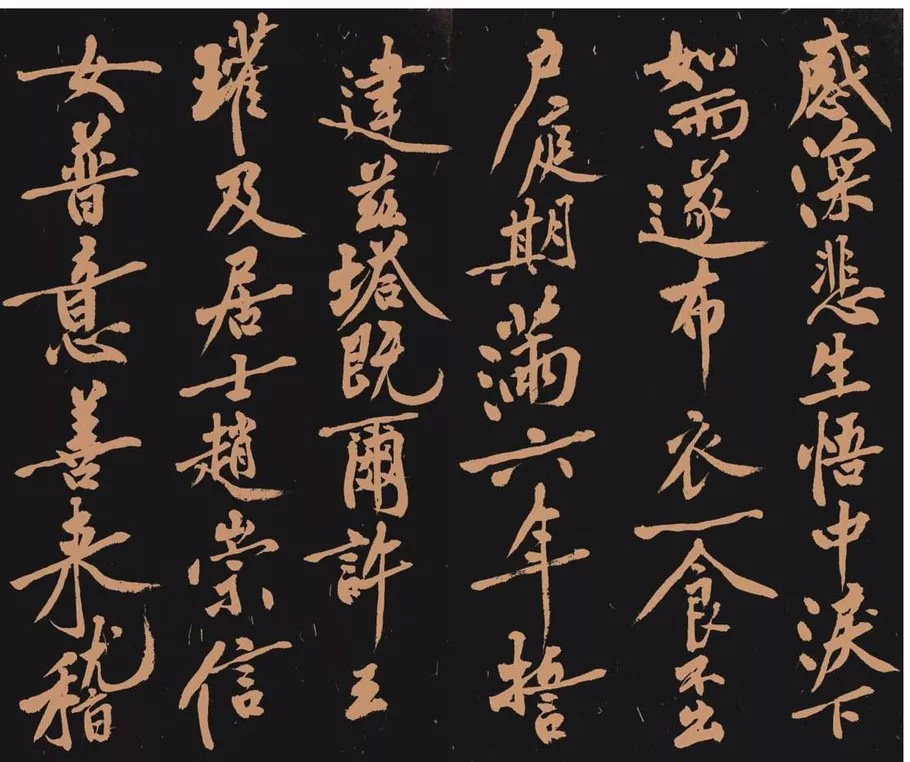 感深悲生悟中淚下
如雨遂布衣一食不出
户庭期滿六年誓
建茲塔既爾許王
瓘及居士趙崇信
女普意善来稽